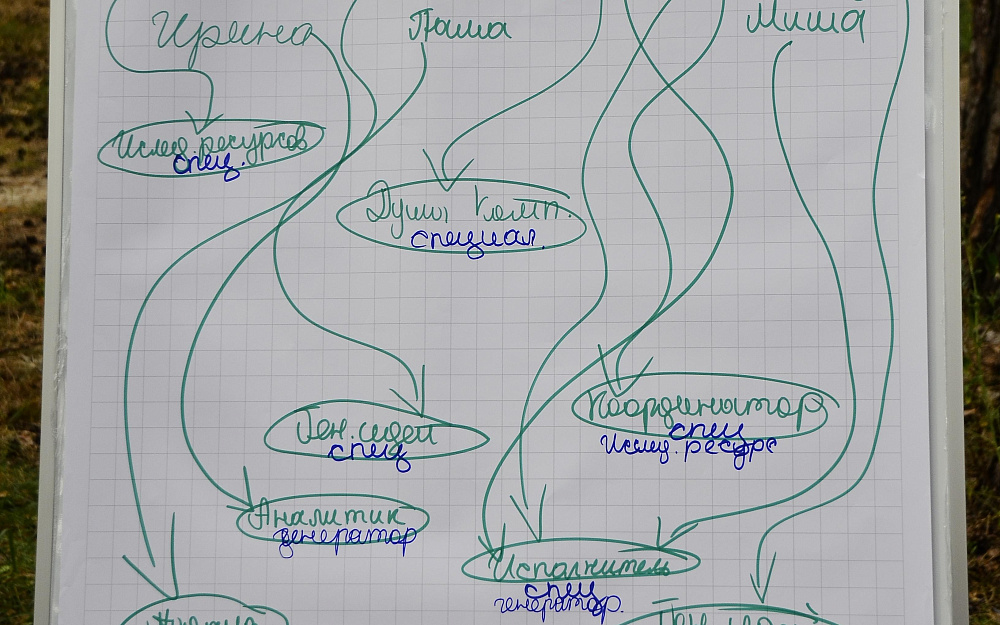 Ирина
Паша
Миша
Исслед. ресурсов
спец.
Душа комп.
специал.
Ген. идей
спец
Координатор
спец
Исслед. ресурс
Аналитик
генератор
Исполнитель
спец
генератор.